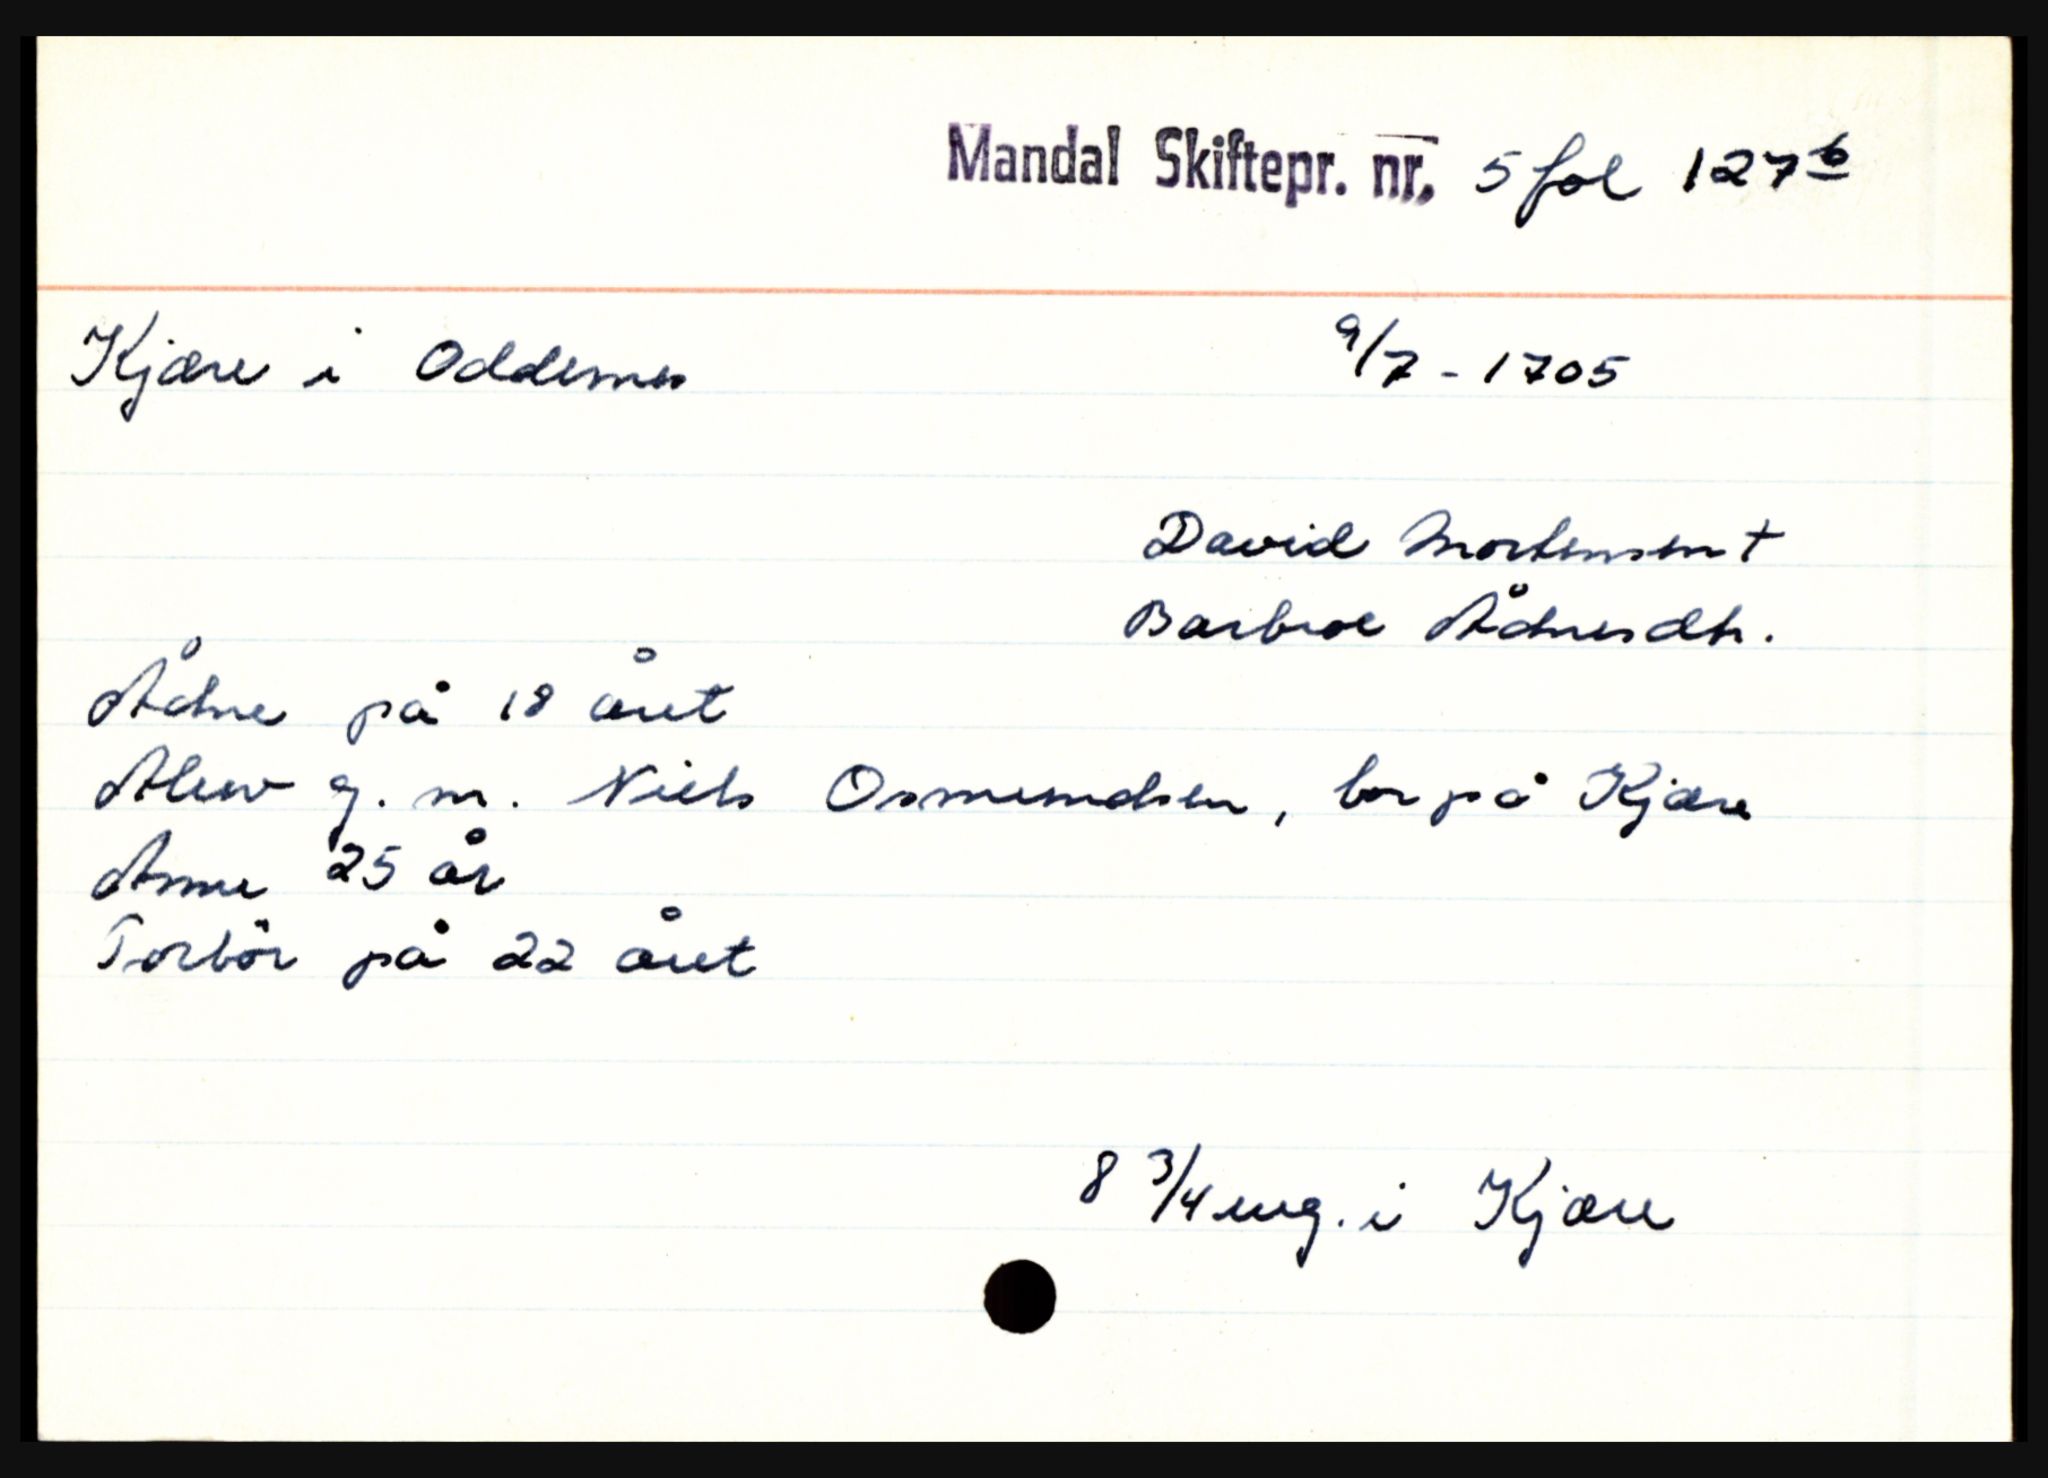 Mandal Skiftepr. nr. 5 fol 127b
Kjære i Oddernes 9/7 - 1705
David Mortensen +
Barbroe Ådnesdtr.
Ådne på 18 året
Alew g. m. Niels Osmundsen, bor på Kjære
Anne 25 år
Torbör på 22 året
8 3/4 eng. i Kjære